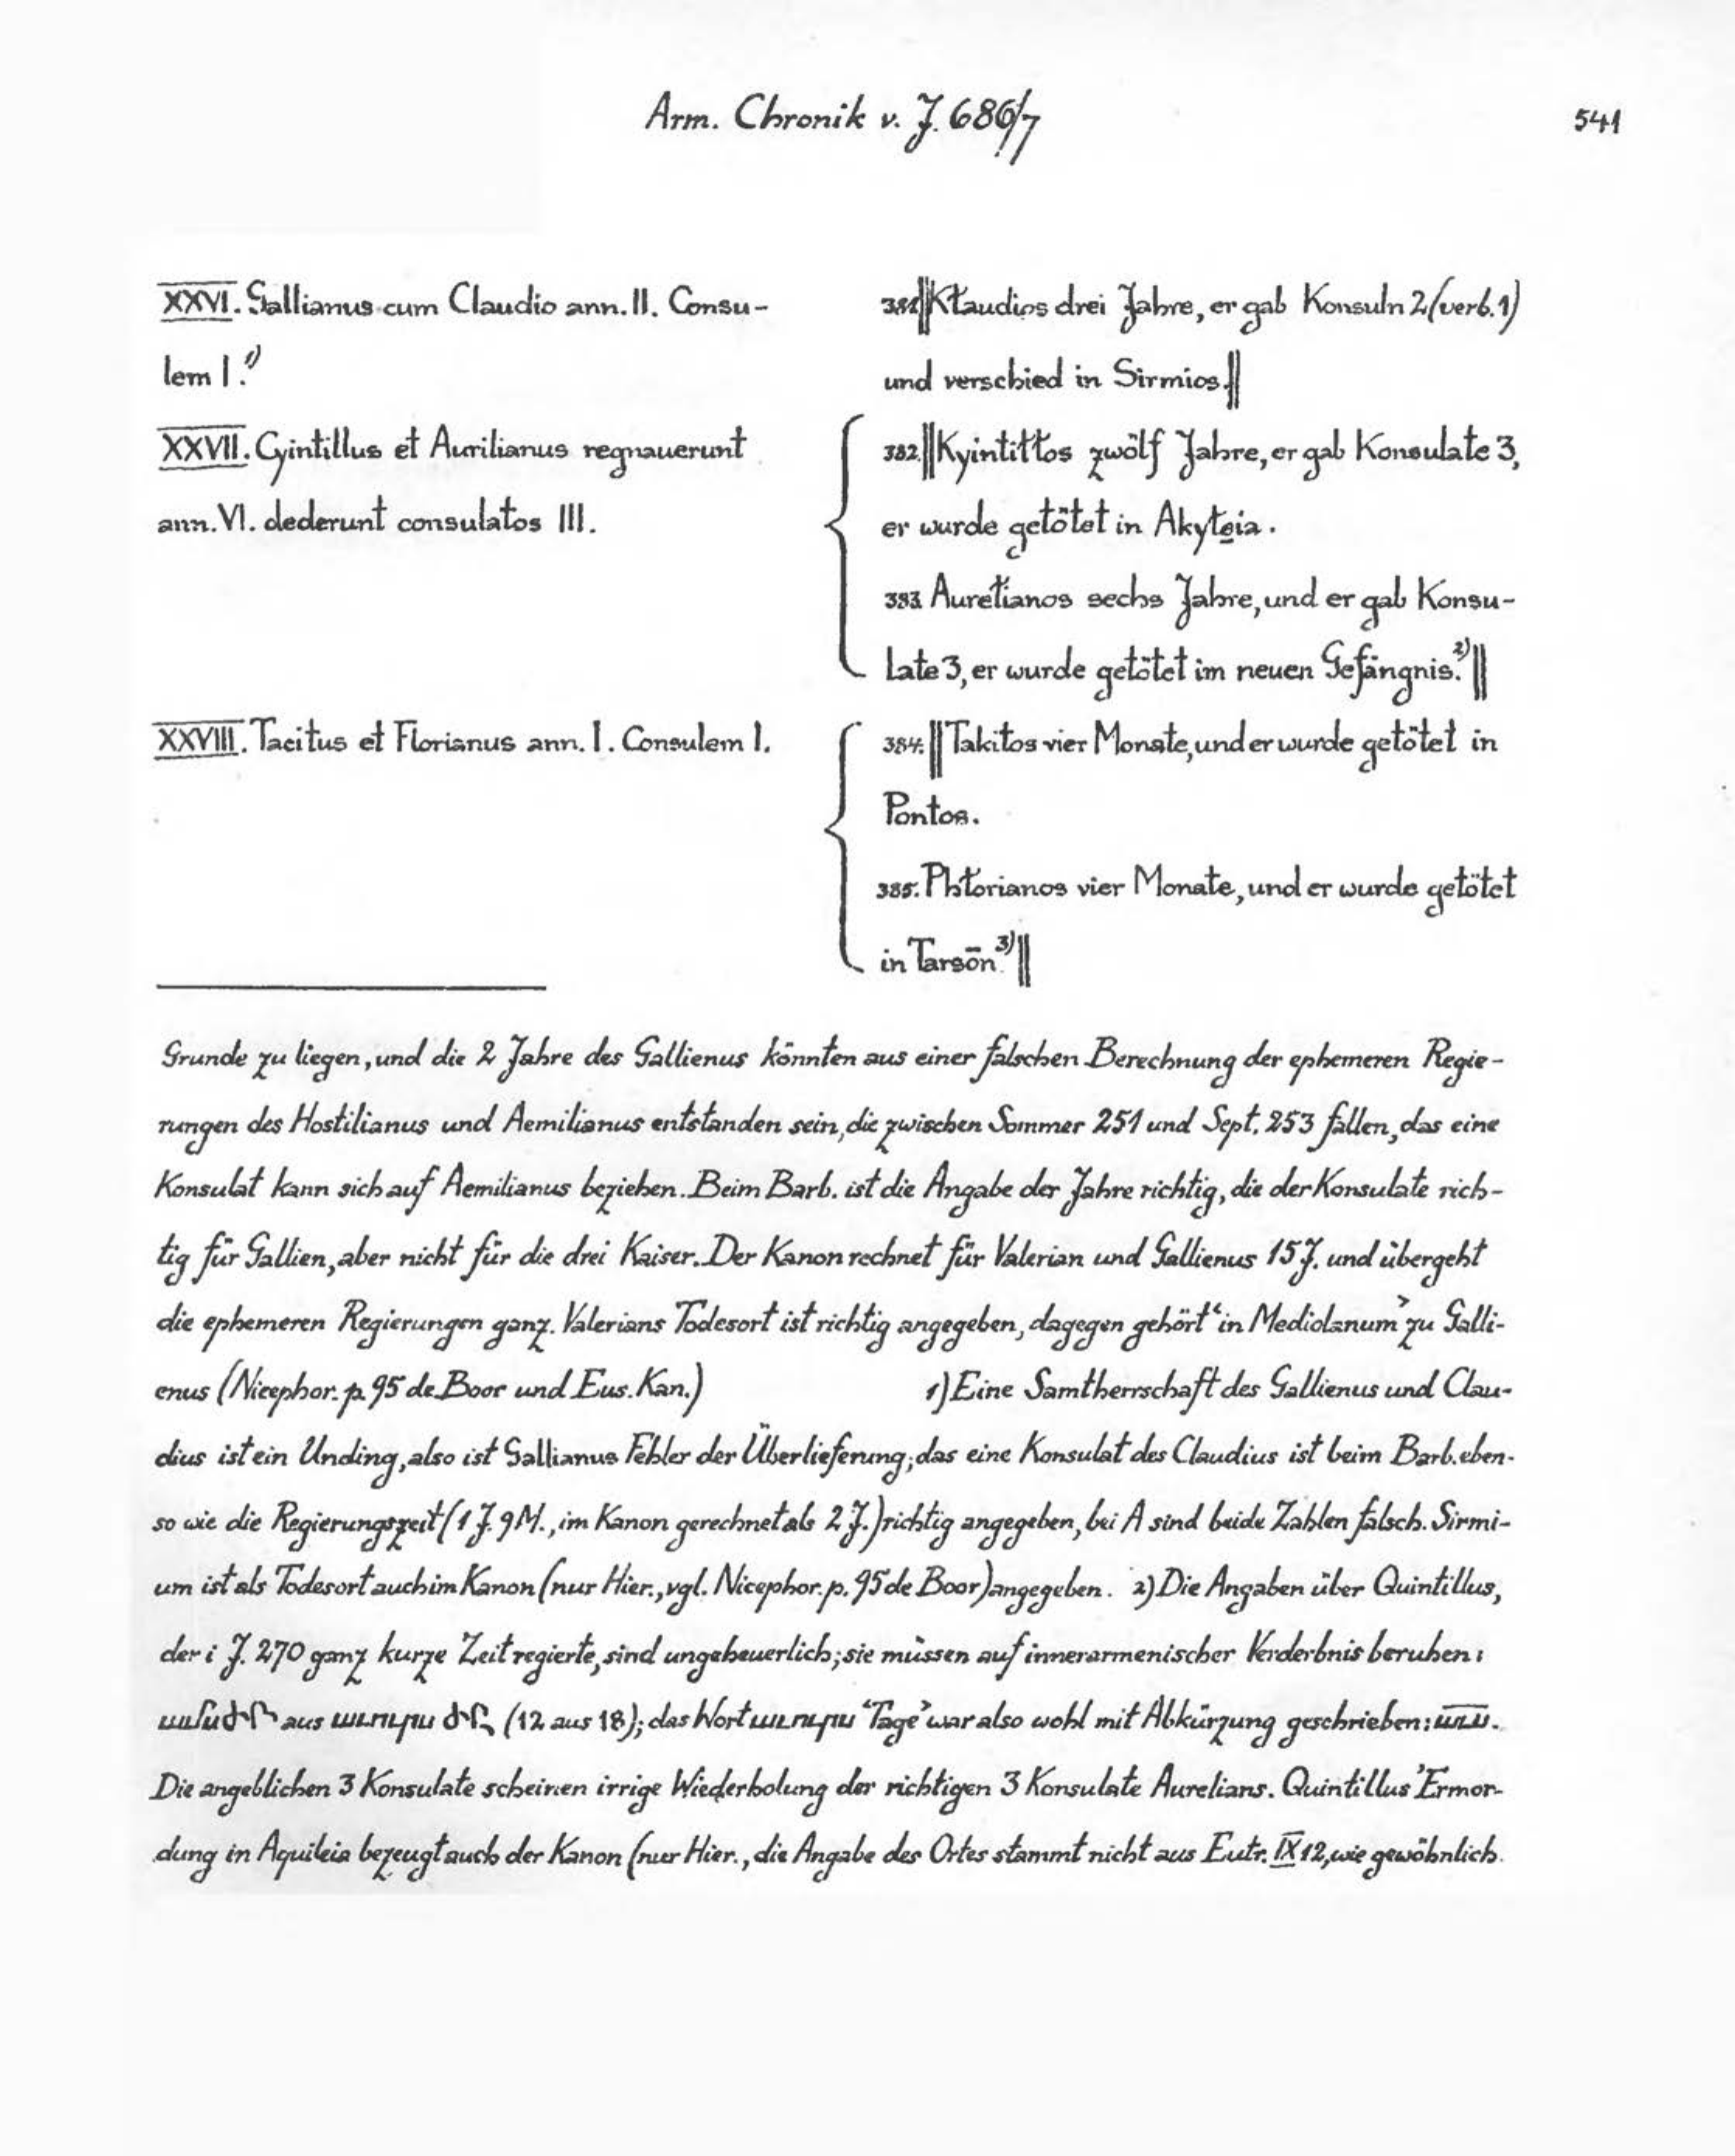 Arm. Chronik v. J. 686/7
541
XXVI. Gallianus cum Claudio ann. II. Consu-
lem I.¹⁾
XXVII. Cyintillus et Aurilianus regnauerunt
ann. VI. dederunt consulatos III.
XXVIII. Tacitus et Florianus ann. I. Consulem I.
381.‖Kłaudios drei Jahre, er gab Konsuln 2 (verb. 1)
und verschied in Sirmios.‖
382.‖Kyintiłłos zwölf Jahre, er gab Konsulate 3,
er wurde getötet in Akyłeia.
383. Aurełianos sechs Jahre, und er gab Konsu-
late 3, er wurde getötet im neuen Gefängnis.²⁾‖
384.‖Takitos vier Monate, und er wurde getötet in
Pontos.
385. Phłorianos vier Monate, und er wurde getötet
in Tarsōn.³⁾‖
Grunde zu liegen, und die 2 Jahre des Gallienus könnten aus einer falschen Berechnung der ephemeren Regie-
rungen des Hostilianus und Aemilianus entstanden sein, die zwischen Sommer 251 und Sept. 253 fallen, das eine
Konsulat kann sich auf Aemilianus beziehen. Beim Barb. ist die Angabe der Jahre richtig, die der Konsulate rich-
tig für Gallien, aber nicht für die drei Kaiser. Der Kanon rechnet für Valerian und Gallienus 15 J. und übergeht
die ephemeren Regierungen ganz. Valerians Todesort ist richtig angegeben, dagegen gehört ‘in Mediolanum’ zu Galli-
enus (Nicephor. p. 95 de Boor und Eus. Kan.) 1) Eine Samtherrschaft des Gallienus und Clau-
dius ist ein Unding, also ist Gallianus Fehler der Überlieferung; das eine Konsulat des Claudius ist beim Barb. eben-
so wie die Regierungszeit (1 J. 9 M., im Kanon gerechnet als 2 J.) richtig angegeben, bei A sind beide Zahlen falsch. Sirmi-
um ist als Todesort auch im Kanon (nur Hier., vgl. Nicephor. p. 95 de Boor) angegeben. 2) Die Angaben über Quintillus,
der i J. 270 ganz kurze Zeit regierte, sind ungeheuerlich; sie müssen auf innerarmenischer Verderbnis beruhen:
aus (12 aus 18); das Wort ‘Tage’ war also wohl mit Abkürzung geschrieben:
Die angeblichen 3 Konsulate scheinen irrige Wiederholung der richtigen 3 Konsulate Aurelians. Quintillus’ Ermor-
dung in Aquileia bezeugt auch der Kanon (nur Hier., die Angabe des Ortes stammt nicht aus Eutr. IX 12, wie gewöhnlich